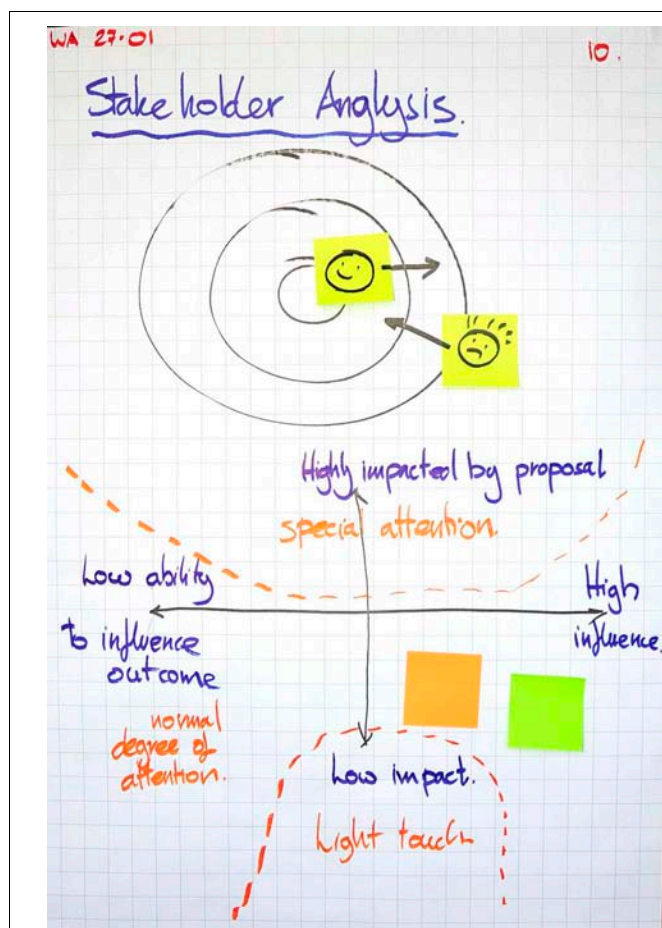 WA 27.01
10.
Stakeholder Analysis.
Highly impacted by proposal
special attention.
Low ability
High
to influence
influence.
outcome
normal
degree of
attention.
Low impact.
Light touch